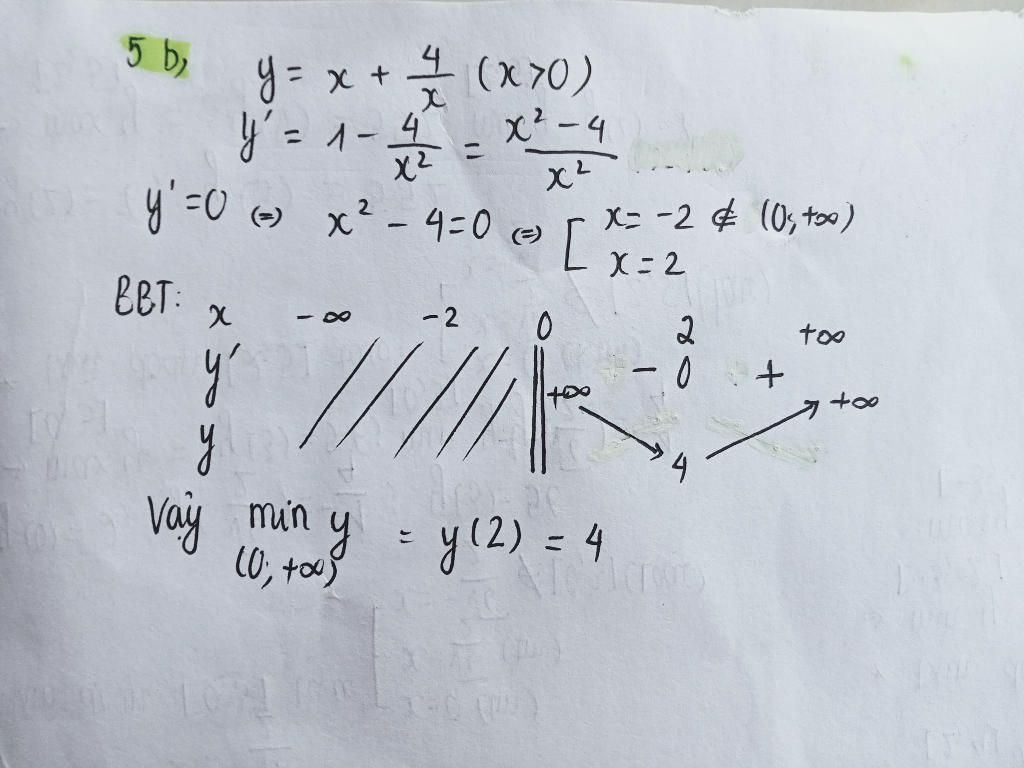 5 b,
y = x + 4/x (x>0)
y' = 1 - 4/x² = (x² - 4)/x²
y' = 0 (=) x² - 4 = 0 (=) [ x = -2 ∉ (0; +∞)
x = 2
BBT: x -∞ -2 0 2 +∞
y' - 0 +
y +∞ 4 +∞
Vậy min y = y(2) = 4
(0; +∞)